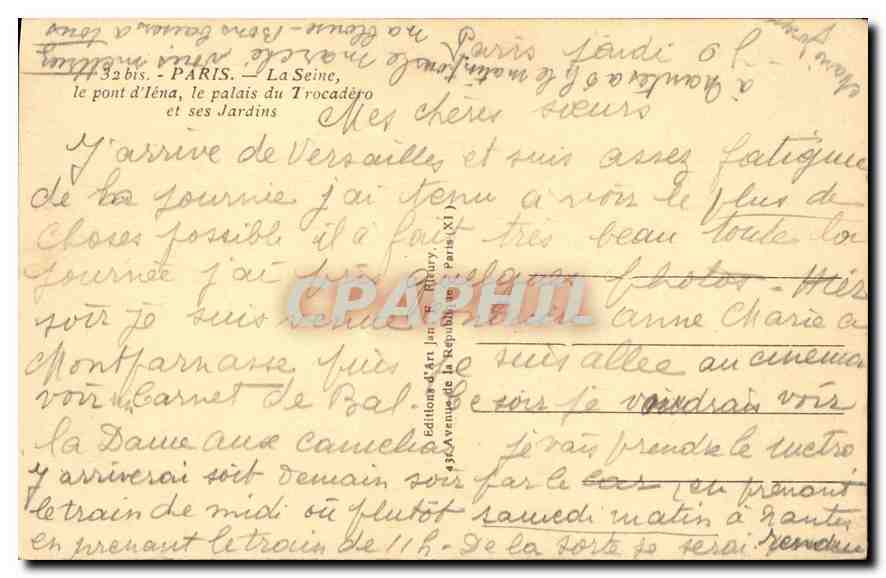 32 bis. - PARIS. - La Seine,
le pont d'Iéna, le palais du Trocadéro
et ses Jardins
Paris jeudi 9 h
Mes chères sœurs
J'arrive de Versailles et suis assez fatiguée
de la journée j'ai tenu a voir le plus de
choses possible il a fait très beau toute la
journée j'ai pris quelques photos - Hier
soir je suis venue anne Marie a
Montparnasse puis je suis allée au cinema
voir "Carnet de Bal. Ce soir je voudrais voir
la Dame aux camelias je vais prendre le metro
J'arriverai soit Demain soir par le car, en prenant
le train de midi ou plutôt samedi matin à Nantes
en prenant le train de 11h - De la sorte je serai rendue
à Nantes a 6 h le matin
Bons baisers a tous
Editions d'Art Jan F. Fleury,
43, Avenue de la République - Paris (XI)
CPAPHIL